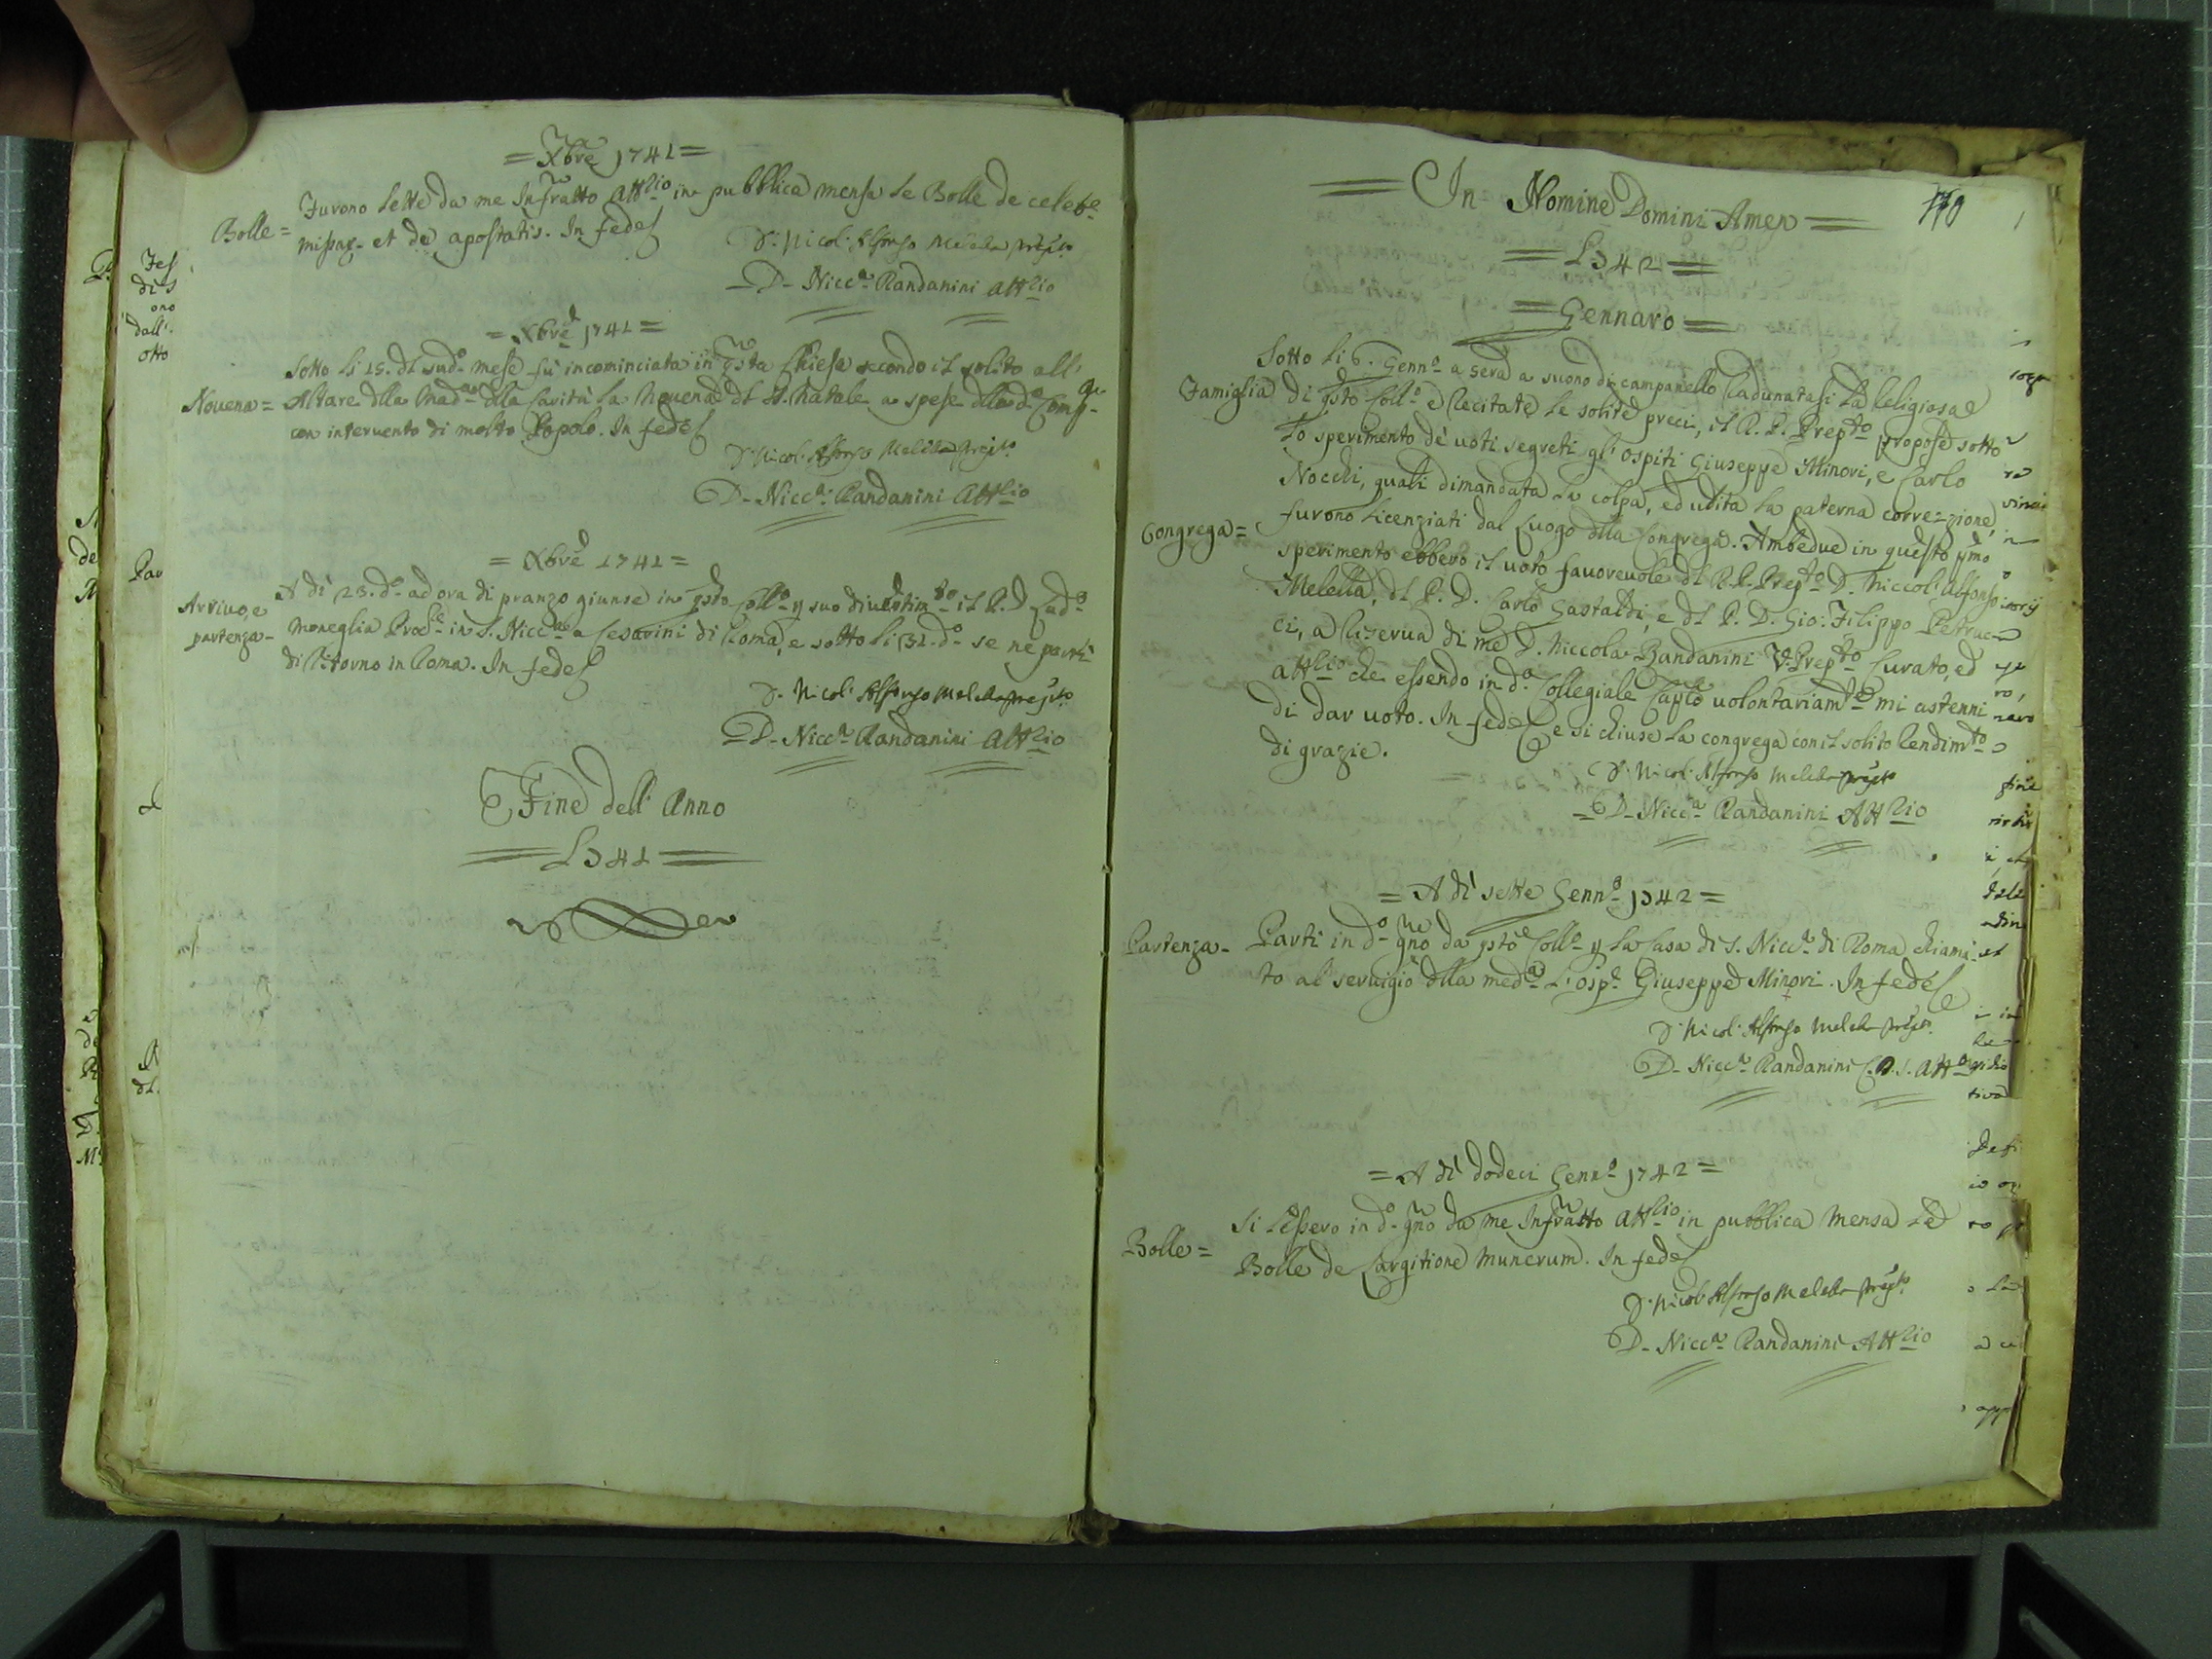 = Xbre 1741 =
Furono Lette da me Infratto Attlio in pubblica mensa Le Bolle de celebe
Bolle =
missar. et de apostatis. In fede
D. Nicol. Alfonso Melella Prepto
D. Niccª Randanini Attlio
= Xbre 1741 =
Sotto Li 15. dl sudº mese fù incominciata in qsta Chiesa secondo il solito all'
Novena = Altare dlla Madª dlla Carità La Novena dl SS. Natale a spese dlla dª Compª
con intervento di molto Popolo. In fede
D. Nicol. Alfonso Melella Prepto
D. Niccª Randanini Attlio
= Xbre 1741 =
A dì 23. dº ad ora di pranzo giunse in qsto Collº p suo divertimto il P. D.
Arrivo, e
partenza -
Moneglia Prode in S. Niccª a Cesarini di Roma, e sotto li 31. dº se ne partì
di Ritorno in Roma. In fede
D. Nicol. Alfonso Melella Prepto
D. Niccª Randanini Attlio
Fine dell' Anno
1741
In Nomine Domini Amen
170
1742
Gennaro
Sotto Li 6. Gennº a sera a suono di campanello Radunatasi La Religiosa
Famiglia di qsto Collº e Recitate Le solite preci, il R. P. Prepto propose sotto
Lo sperimento de' voti segreti gl' ospiti Giuseppe Minori, e Carlo
Nocchi, quali dimandata La colpa, ed udita La paterna correzzione,
Congrega = furono Licenziati dal Luogo dlla Congrega. Ambedue in questo pmo
sperimento ebbero il voto favorevole dl R. P. Prepto D. Niccol' Alfonso
Melella, dl P. D. Carlo Gastaldi, e dl P. D. Gio: Filippo Petruc=
ci, a Riserva di me D. Niccola Randanini V. Prepto Curato, ed
Attlio che essendo in dº Collegiale Caplo volontariamte mi astenni
di dar voto. In fede e si chiuse La congrega con il solito Rendimto
di grazie.
D. Nicol. Alfonso Melella Prepto
D. Niccª Randanini Attlio
= A dì sette Gennº 1742 =
Partenza - Partì in dº gno da qsto Collº p La Casa di S. Niccª di Roma chiama=
to al servigio dlla medª L' ospe Giuseppe Minori. In fede
D. Nicol. Alfonso Melella Prepto
D. Niccª Randanini C. R. S. Attº
= A dì dodeci Gennº 1742 =
Si Lessero in dº gno da me Infratto Attlio in pubblica Mensa Le
Bolle = Bolle de Largitione Munerum. In fede
D. Nicol. Alfonso Melella Prepto
D. Niccª Randanini Attlio